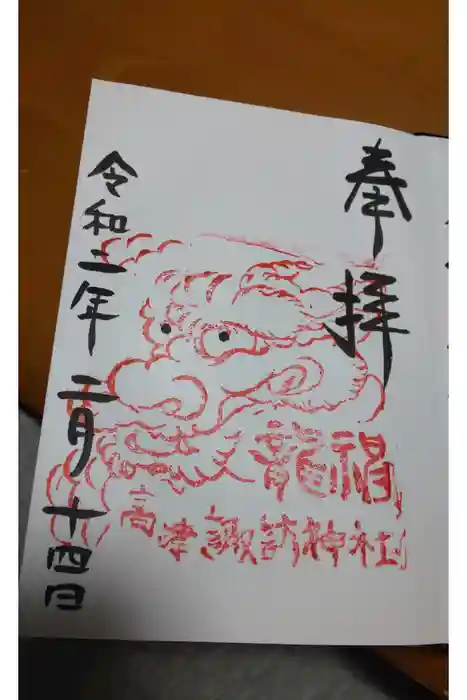 奉拝
龍福
高津諏訪神社
令和二年 二月 十四日